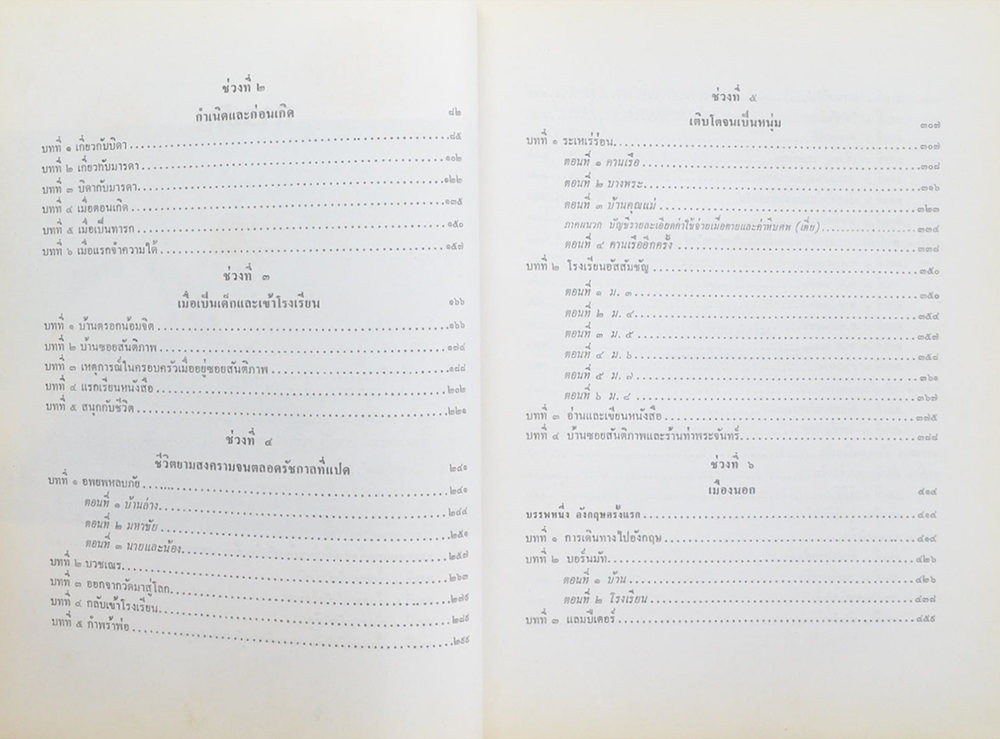 ช่วงที่ ๒
กำเนิดและก่อนเกิด ๘๒
บทที่ ๑ เกี่ยวกับบิดา ๘๕
บทที่ ๒ เกี่ยวกับมารดา ๑๐๒
บทที่ ๓ บิดากับมารดา ๑๒๒
บทที่ ๔ เมื่อตอนเกิด ๑๓๕
บทที่ ๕ เมื่อเป็นทารก ๑๕๐
บทที่ ๖ เมื่อแรกจำความได้ ๑๕๗
ช่วงที่ ๓
เมื่อเป็นเด็กและเข้าโรงเรียน ๑๖๖
บทที่ ๑ บ้านตรอกน้อมจิต ๑๖๖
บทที่ ๒ บ้านซอยสันติภาพ ๑๗๔
บทที่ ๓ เหตุการณ์ในครอบครัวเมื่ออยู่ซอยสันติภาพ ๑๘๘
บทที่ ๔ แรกเรียนหนังสือ ๒๐๒
บทที่ ๕ สนุกกับชีวิต ๒๒๑
ช่วงที่ ๔
ชีวิตยามสงครามจนตลอดรัชกาลที่แปด ๒๔๑
บทที่ ๑ อพยพหลบภัย ๒๔๑
ตอนที่ ๑ บ้านล่าง ๒๔๔
ตอนที่ ๒ มหาชัย ๒๕๑
ตอนที่ ๓ นายและน้อง ๒๕๗
บทที่ ๒ บวชเณร ๒๖๓
บทที่ ๓ ออกจากวัดมาสู่โลก ๒๗๙
บทที่ ๔ กลับเข้าโรงเรียน ๒๘๙
บทที่ ๕ กำพร้าพ่อ ๒๙๙
ช่วงที่ ๕
เติบโตจนเป็นหนุ่ม ๓๐๗
บทที่ ๑ ระเหเร่ร่อน ๓๐๗
ตอนที่ ๑ คานเรือ ๓๐๘
ตอนที่ ๒ บางพระ ๓๑๖
ตอนที่ ๓ บ้านคุณแม่ ๓๒๓
ภาคผนวก บัญชีรายละเอียดค่าใช้จ่ายเมื่อตายและค่าดิบศพ (เตี่ย) ๓๓๔
ตอนที่ ๔ คานเรืออีกครั้ง ๓๓๘
บทที่ ๒ โรงเรียนอัสสัมชัญ ๓๕๐
ตอนที่ ๑ ม. ๓ ๓๕๑
ตอนที่ ๒ ม. ๔ ๓๕๔
ตอนที่ ๓ ม. ๕ ๓๕๗
ตอนที่ ๔ ม. ๖ ๓๕๙
ตอนที่ ๕ ม. ๗ ๓๖๑
ตอนที่ ๖ ม. ๘ ๓๖๗
บทที่ ๓ อ่านและเขียนหนังสือ ๓๗๕
บทที่ ๔ บ้านซอยสันติภาพและร้านท่าพระจันทร์ ๓๘๘
ช่วงที่ ๖
เมืองนอก ๔๑๔
บรรพหนึ่ง อังกฤษครั้งแรก ๔๑๔
บทที่ ๑ การเดินทางไปอังกฤษ ๔๑๔
บทที่ ๒ บอร์นมัท ๔๒๖
ตอนที่ ๑ บ้าน ๔๒๖
ตอนที่ ๒ โรงเรียน ๔๓๘
บทที่ ๓ แลมปีเตอร์ ๔๕๙